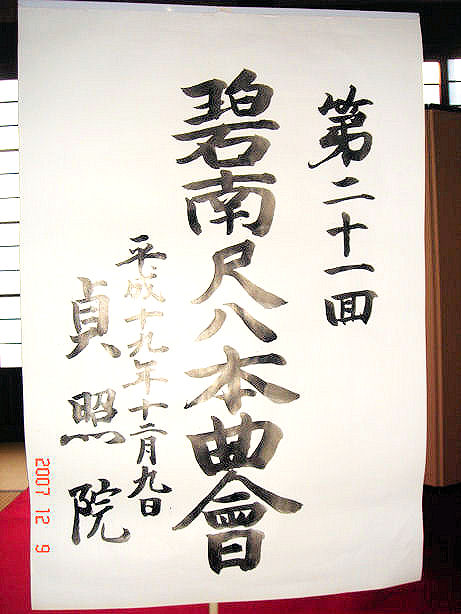 第二十一回
碧南尺八本曲會
平成十九年十二月九日
貞照院
2007 12 9